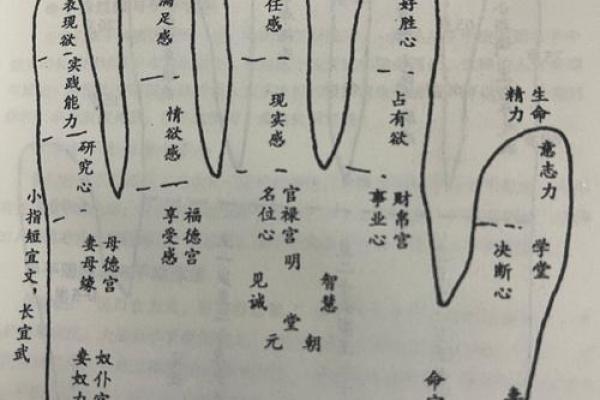 表现欲
实践能力
研究心
小指短宜文，长宜武
妻母缘
母德宫
妻奴力
奴仆宫
满足感
情欲感
享受感
福德宫
任感
现实感
名位心
官禄宫
明
见诚
堂
元
智慧
朝
好胜心
占有欲
事业心
财帛宫
精力
生命
意志力
决断心
学堂
命